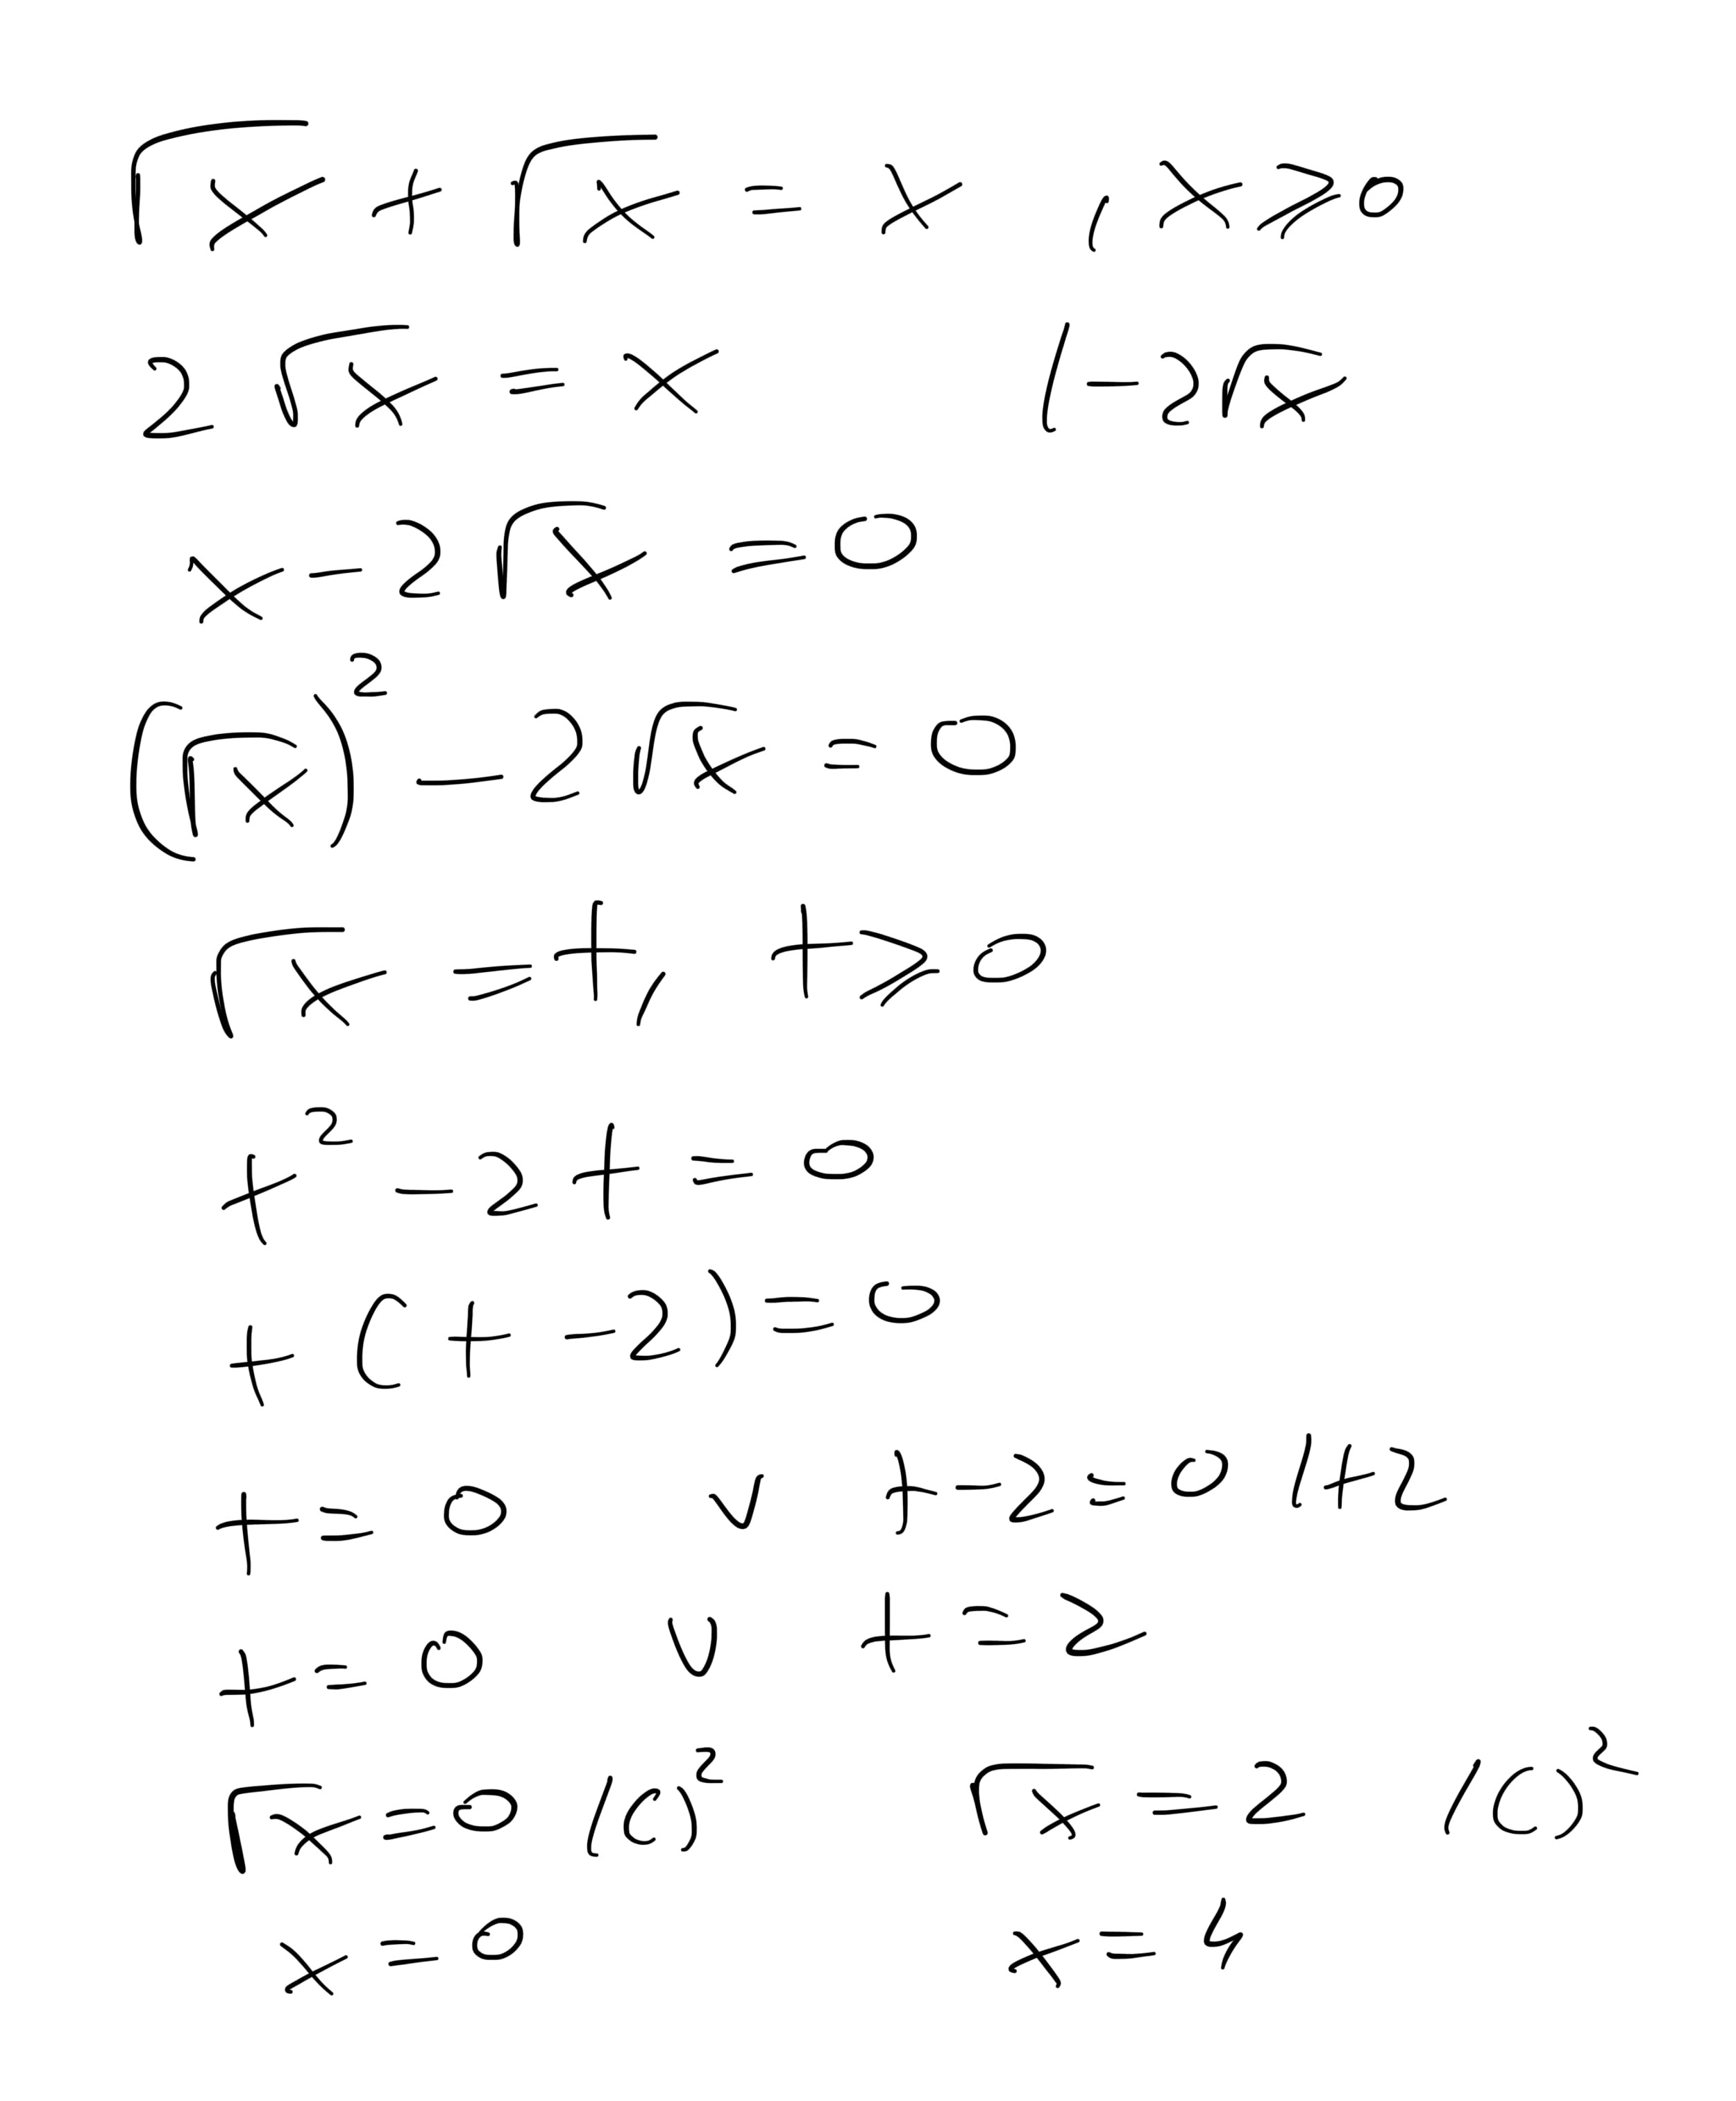 √x + √x = x , x ⩾ 0
2√x = x    / -2√x
x - 2√x = 0
(√x)² - 2√x = 0
√x = t, t ⩾ 0
t² - 2t = 0
t(t - 2) = 0
t = 0 v t - 2 = 0 /+2
t = 0 v t = 2
√x = 0 /()²    √x = 2    /()²
x = 0    x = 4